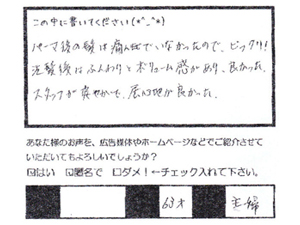 この中に書いてください(*^_^*)
パーマ後の髪は痛んでいなかったので、ビックリ!
洗髪後はふんわりとボリューム感があり、良かった。
スタッフが爽やかで、居心地が良かった。
あなた様のお声を、広告媒体やホームページなどでご紹介させて
いただいてもよろしいでしょうか?
☑はい ☑匿名で □ダメ!←チェック入れて下さい。
63才 主婦